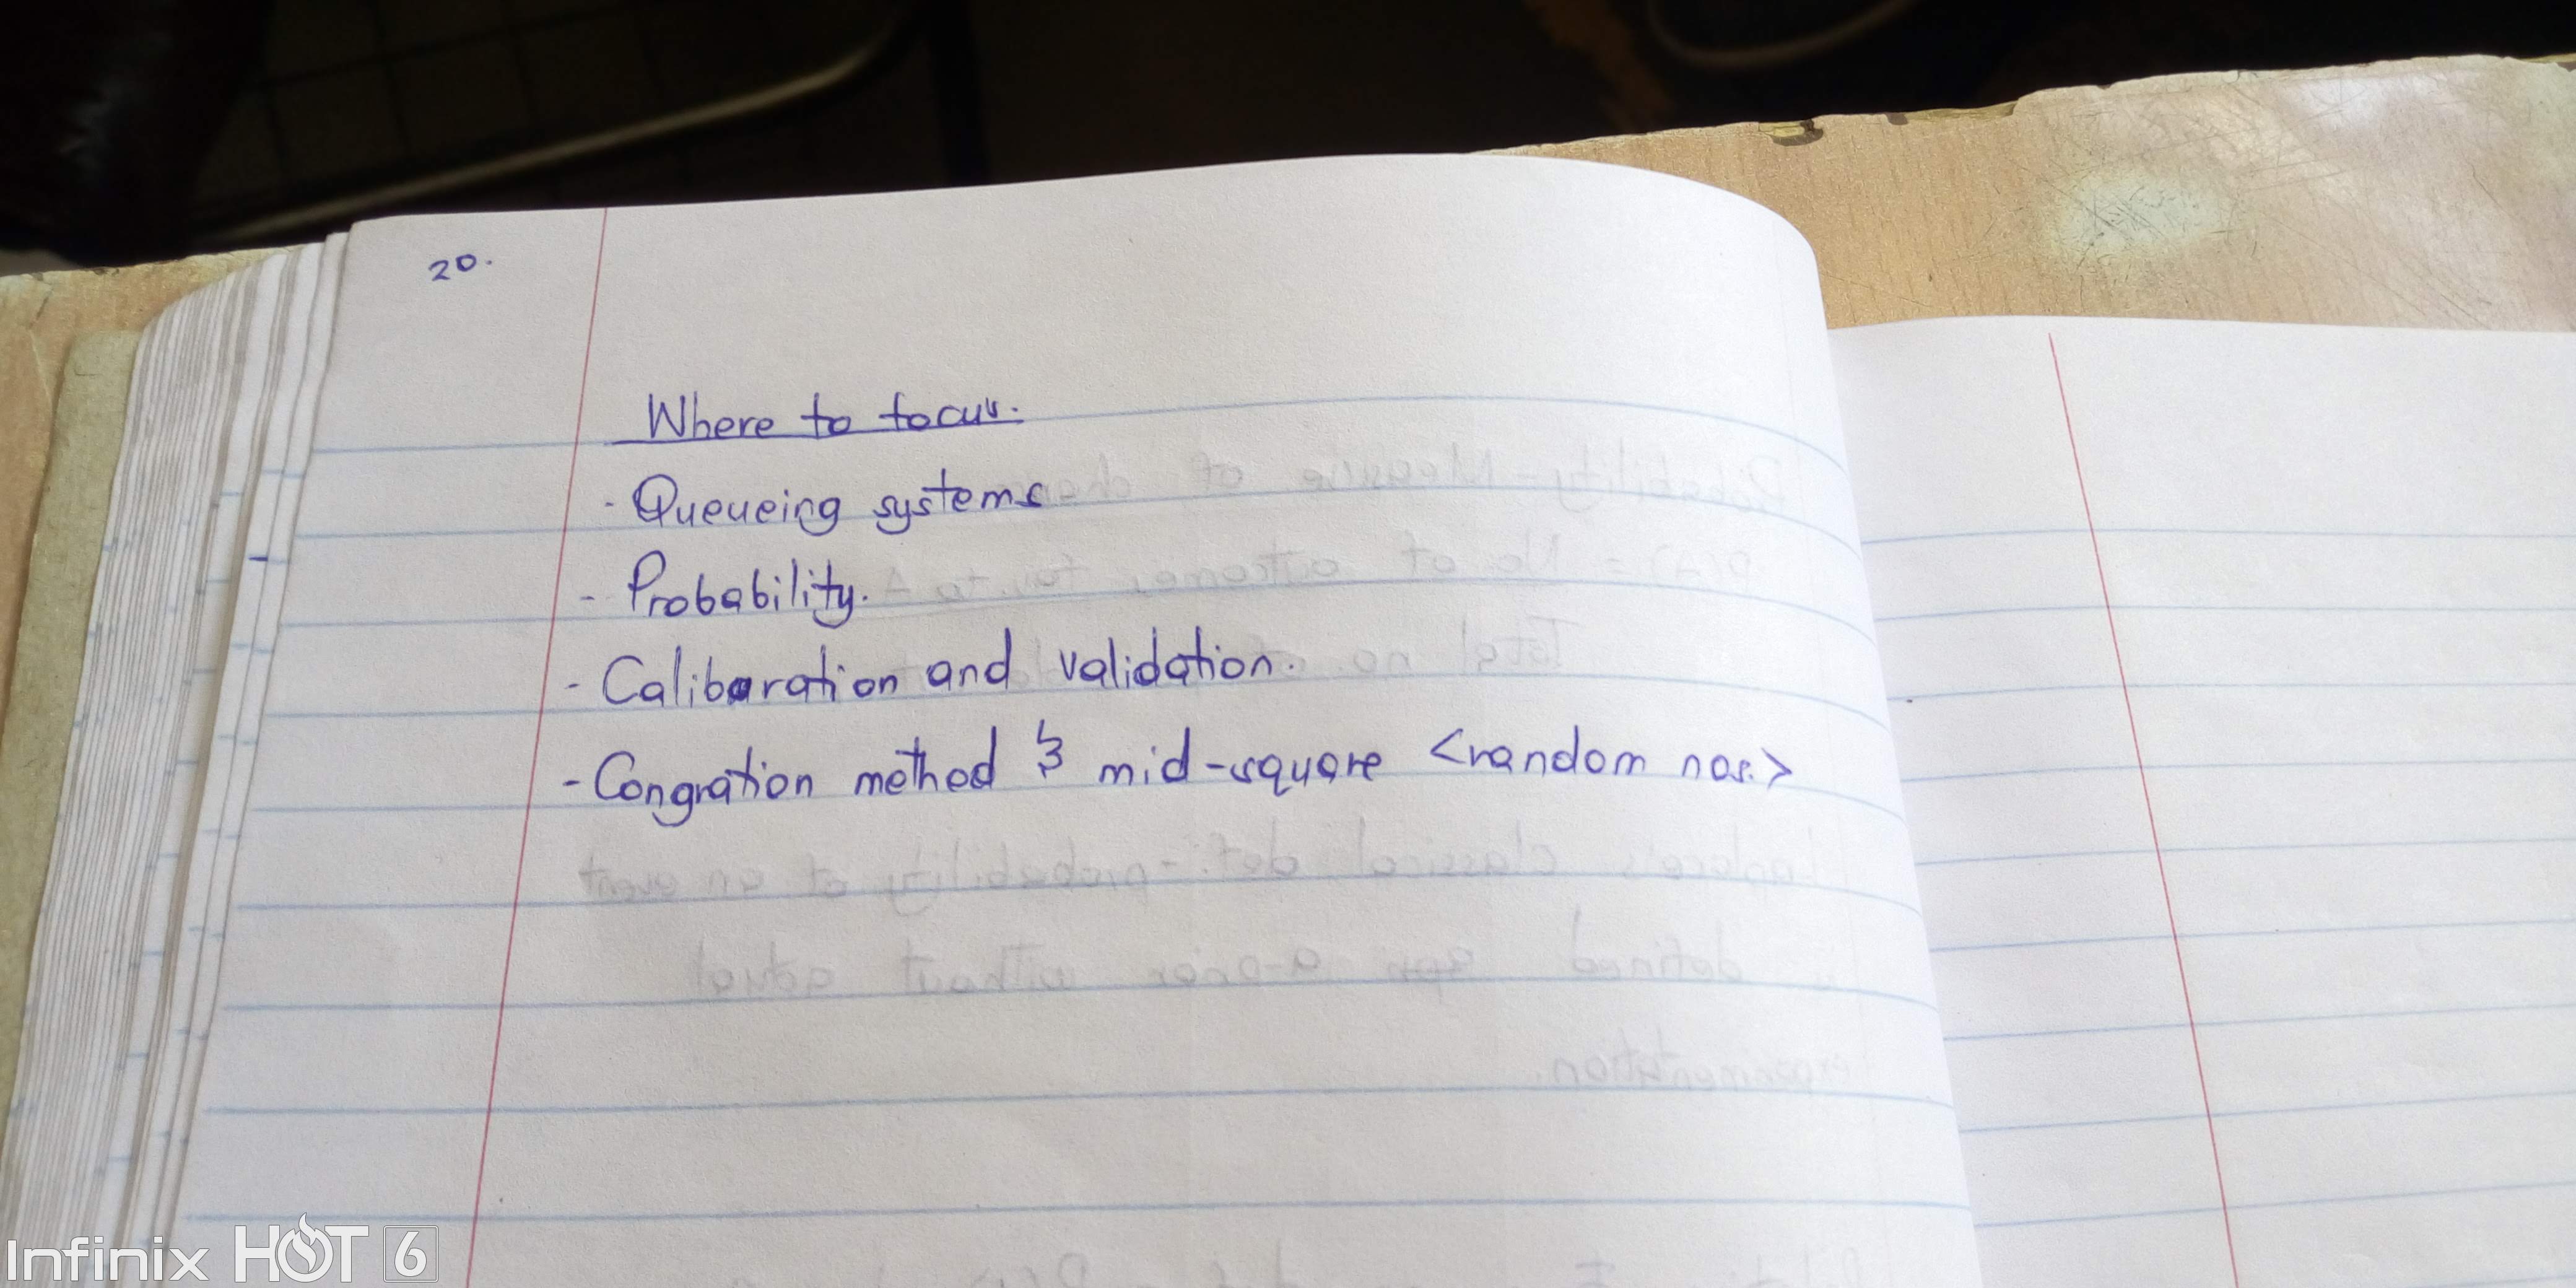 20.
Where to focus.
- Queueing systems
- Probability.
- Calibaration and validation.
- Congration method & mid-square <random nos.>
Infinix HOT 6